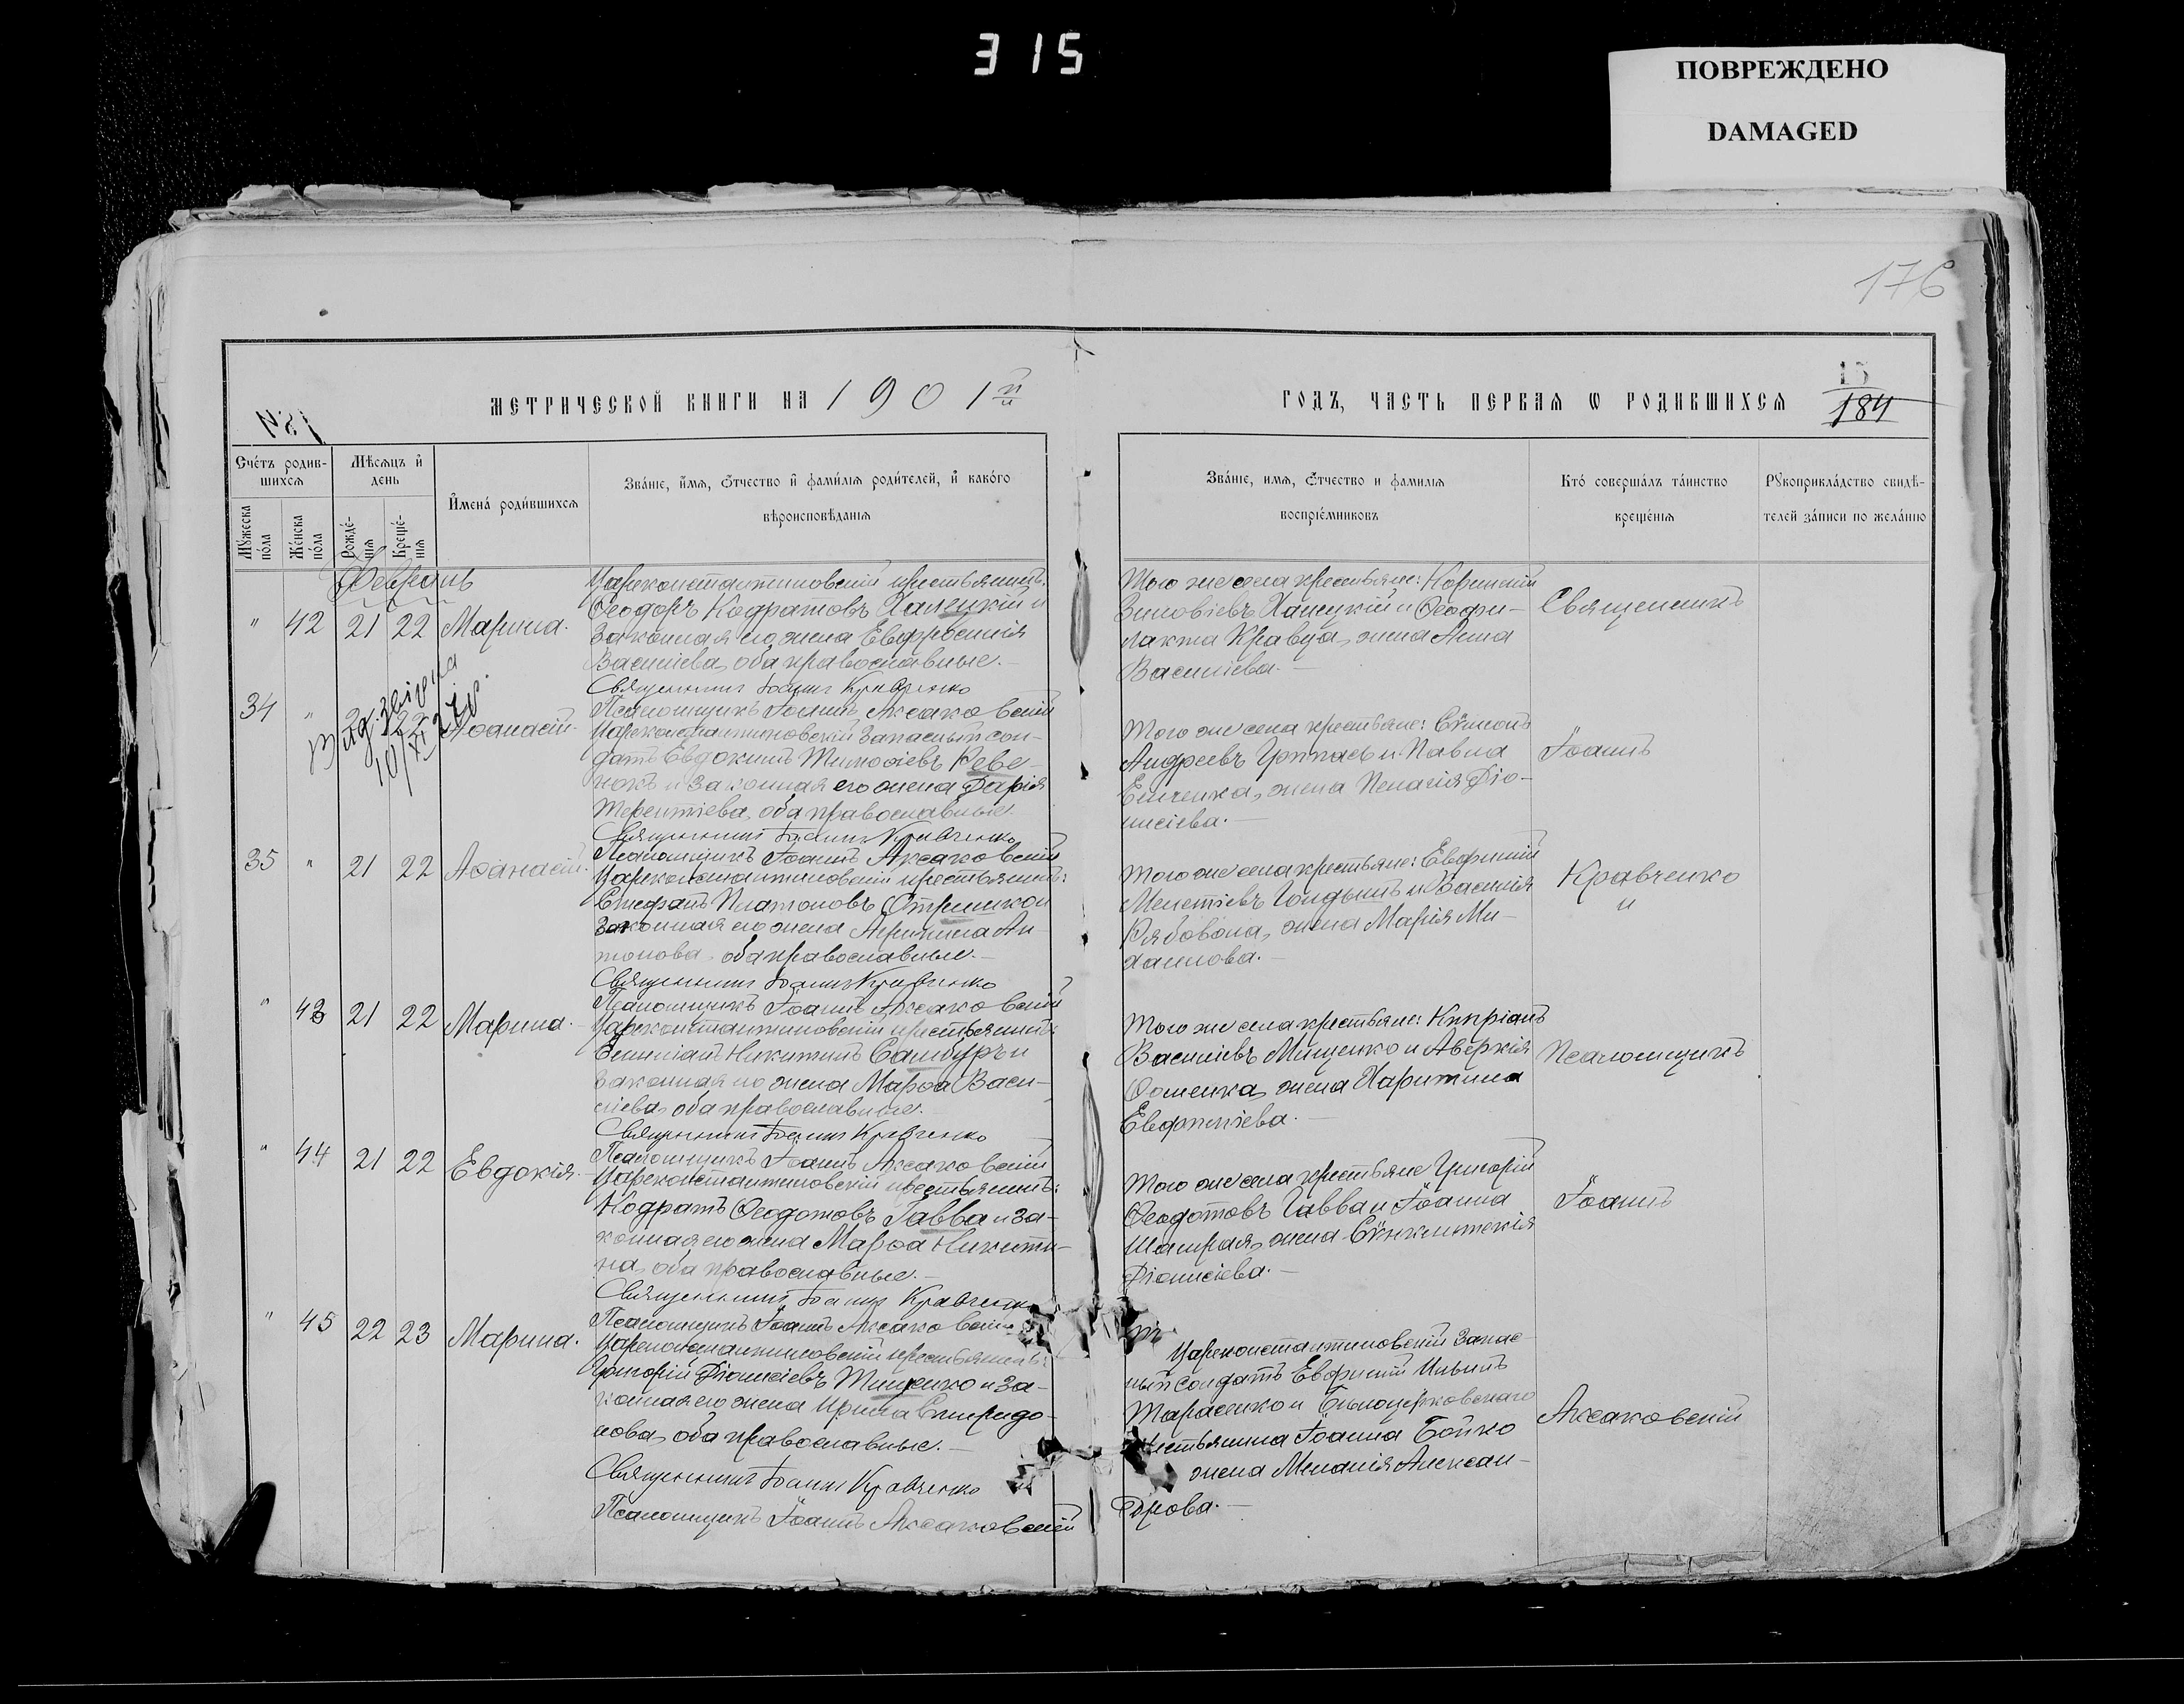 315
ПОВРЕЖДЕНО
DAMAGED
176
МЕТРИЧЕСКОЙ КНИГИ НА 1901й
ГОДЪ, ЧАСТЬ ПЕРВАЯ Ѡ РОДИВШИХСЯ
15
184
Счétъ родив-
шихся
Мѣсяцъ и
день
Имена родившихся
Званіе, имя, Отчество и фамилія родителей, и какого
вѣроисповѣданія
Мужеска пола
Женска пола
Рожденія
Крещенія
Званіе, имя, Отчество и фамилія
воспріемниковъ
Кто совершалъ таинство
крещенія
Рукоприкладство свидѣ-
телей записи по желанію
Февраль
" 42 21 22 Марина.
Цареконстантиновскій крестьянинъ
Ѳеодоръ Кодратовъ Халецкій и
законная его жена Евфросинія
Василіева, оба православные.
Священникъ Іоаннъ Кравченко
Псаломщикъ Іоаннъ Аксаковскій
Того же села крестьяне:
Зиновіевъ Халецкій и Ѳеофи-
лакта Кравца, жена Анна
Василіева.
Священникъ
34 " 22 Аѳанасій.
10/XI
Цареконстантиновскій запасный сол-
датъ Евдокимъ Тимоѳіевъ Реве-
нокъ и законная его жена Дарія
Терентіева, оба православные.
Священникъ Іоаннъ Кравченко
Псаломщикъ Іоаннъ Аксаковскій
Того же села крестьяне: Сѵмеонъ
Андреевъ и Павла
жена Пелагія Діо-
нисіева.
Іоаннъ
35 " 21 22 Аѳанасій.
Цареконстантиновскій крестьянинъ:
Стефанъ Платоновъ
законная его жена Ан-
тонова, оба православные.
Священникъ Іоаннъ Кравченко
Псаломщикъ Іоаннъ Аксаковскій
Того же села крестьяне: Евфимій
Мелетіевъ и Василія
Рябовола, жена Марія Ми-
хаилова.
Кравченко
и
" 43 21 22 Марина.
Цареконстантиновскій крестьянинъ:
Емиліанъ Никитинъ Самбуръ и
законная его жена Марѳа Васи-
ліева, оба православные.
Священникъ Іоаннъ Кравченко
Псаломщикъ Іоаннъ Аксаковскій
Того же села крестьяне: Кипріанъ
Василіевъ Мищенко и Аверкія
Ѳоменка, жена Харитина
Евфиміева.
Псаломщикъ
" 44 21 22 Евдокія.
Цареконстантиновскій крестьянинъ:
Кодратъ Ѳеодотовъ Гавва и за-
конная его жена Марѳа Никити-
на, оба православные.
Священникъ Іоаннъ Кравченко
Псаломщикъ Іоаннъ Аксаковскій
Того же села крестьяне Григорій
Ѳеодотовъ Гавва и Іоанна
Шаграя, жена Сѵнклитикія
Діонисіева.
Іоаннъ
" 45 22 23 Марина.
Цареконстантиновскій крестьянинъ:
Григорій Діонисіевъ Тищенко и за-
конная его жена Ирина Спиридо-
нова, оба православные.
Священникъ Іоаннъ Кравченко
Псаломщикъ Іоаннъ Аксаковскій
Цареконстантиновскій запас-
ный солдатъ Евфимій Ильинъ
Тарасенко и Бѣлоцерковскаго
крестьянина Іоанна Бойко
жена Меланія Алексан-
дрова.
Аксаковскій